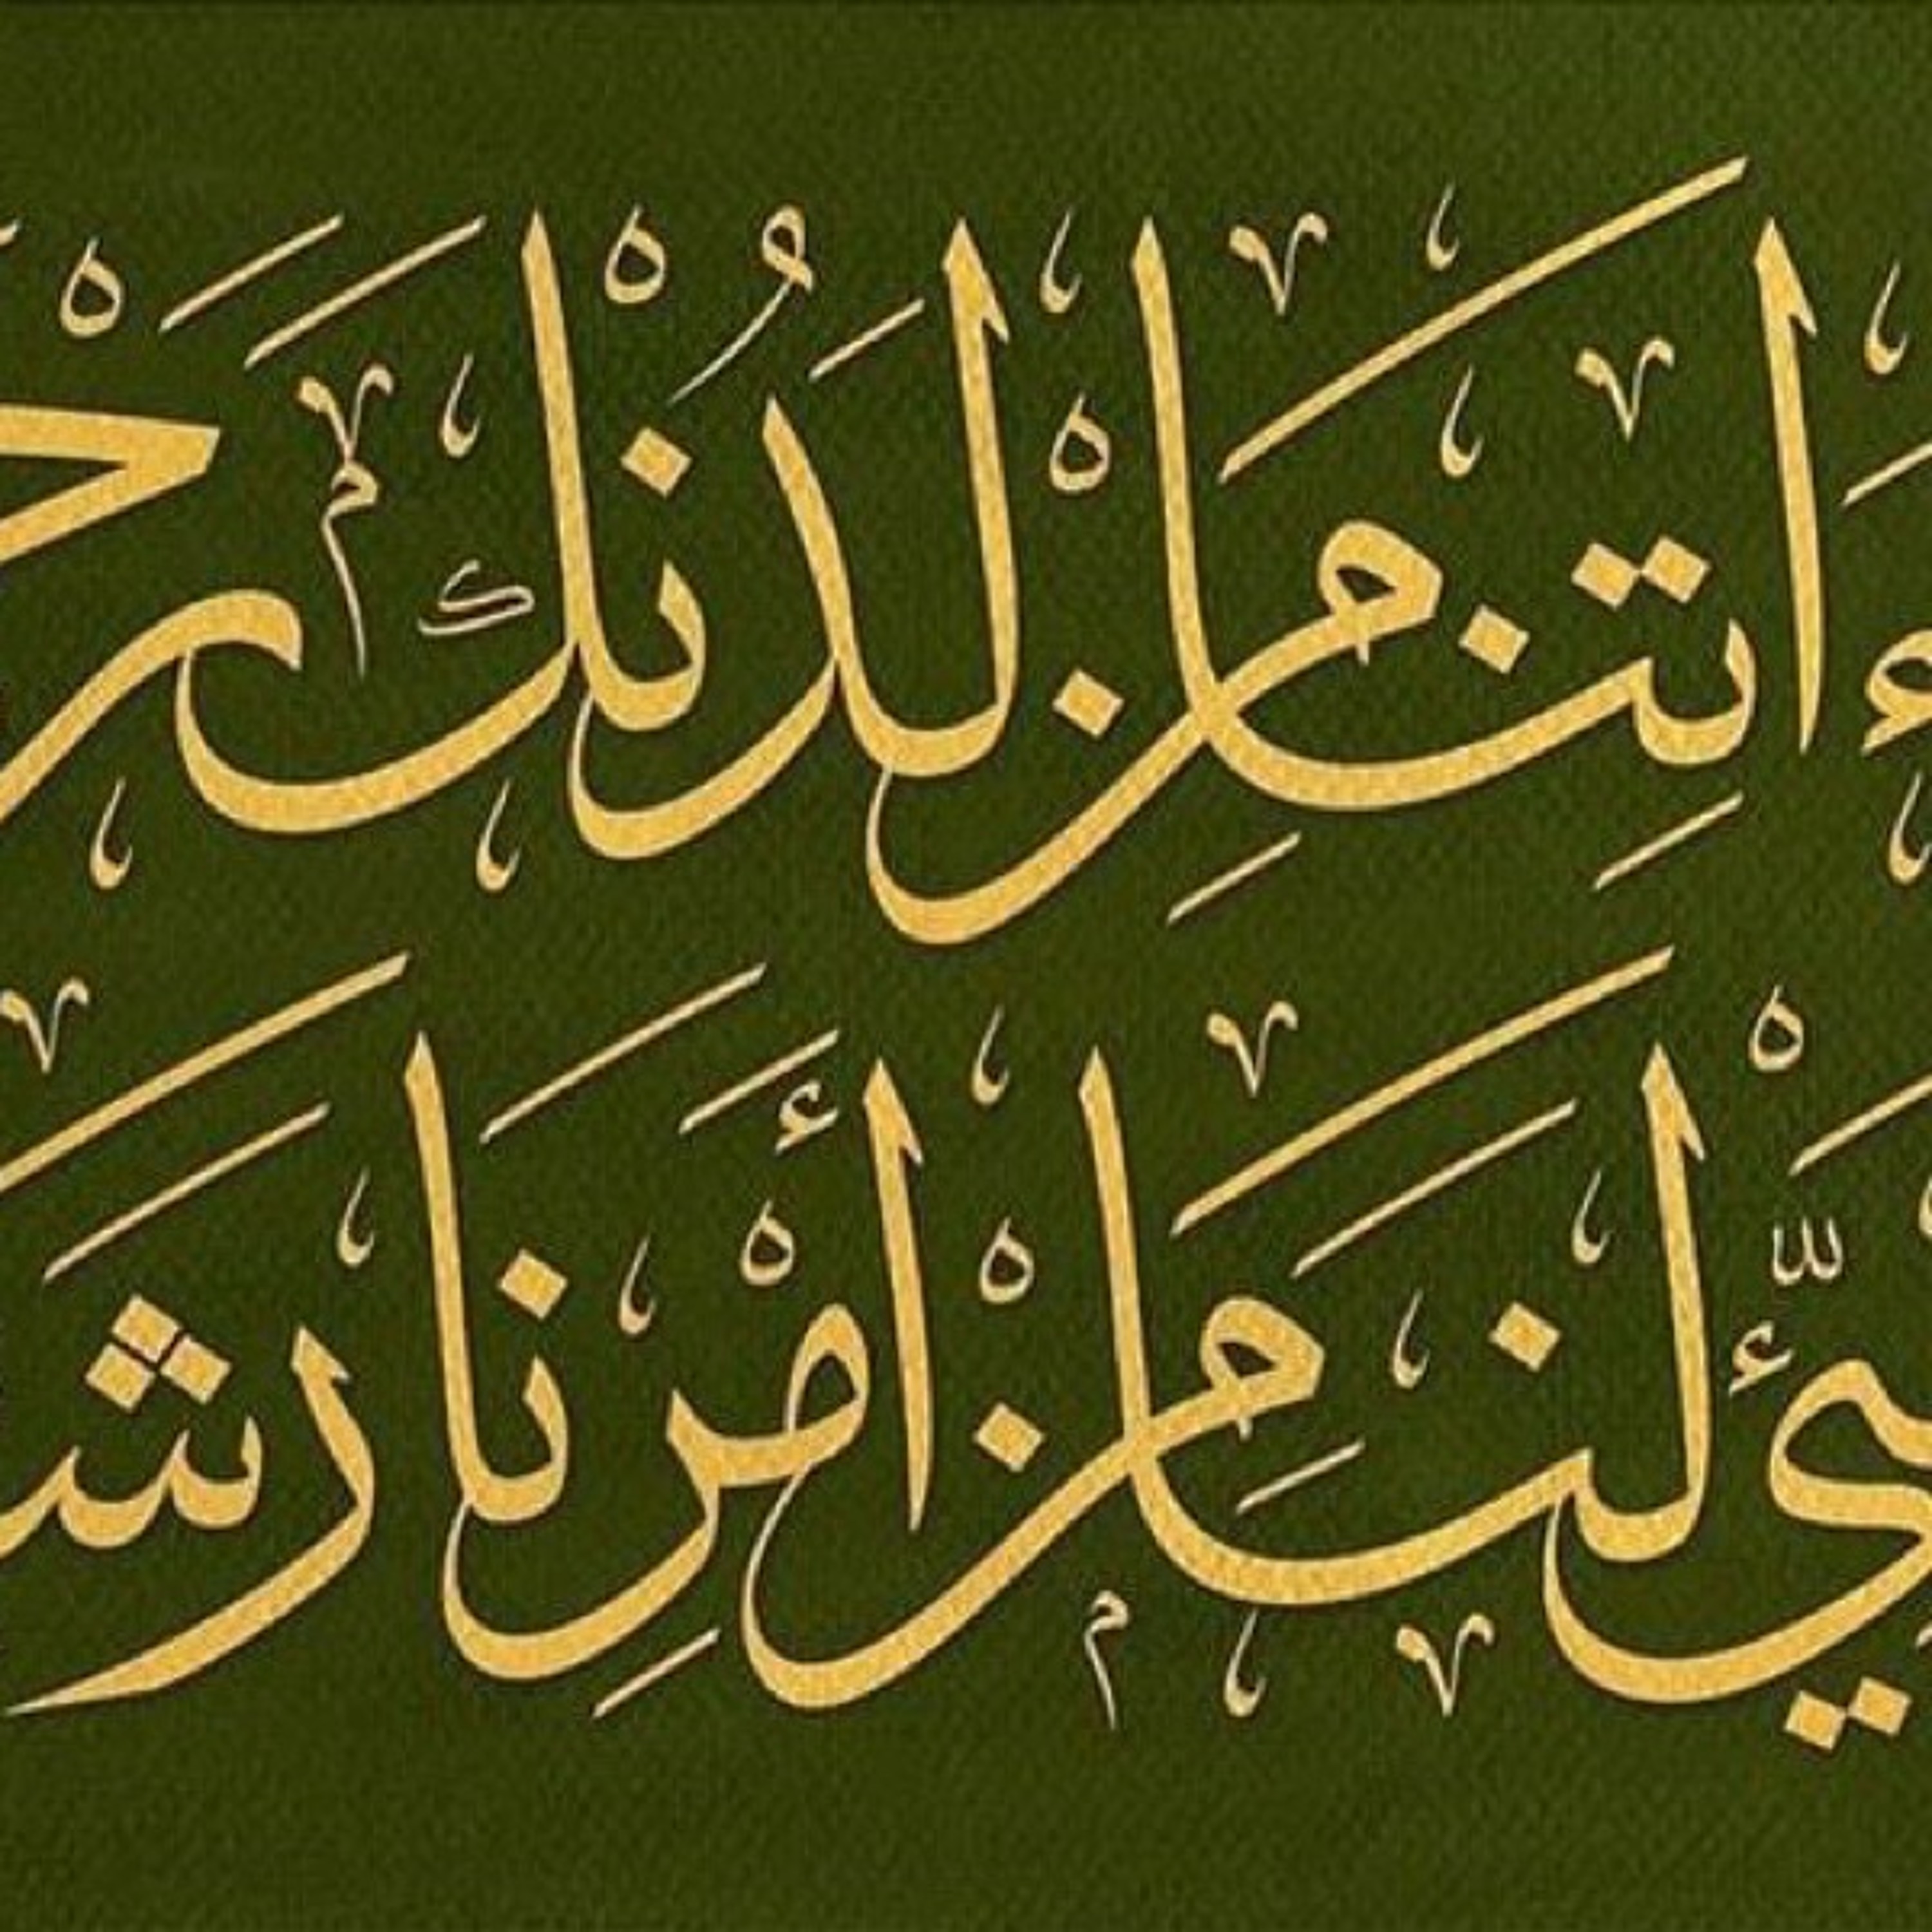 ءَاتِنَا مِن لَّدُنكَ رَحْ
هَيِّئْ لَنَا مِنْ أَمْرِنَا رَشَ